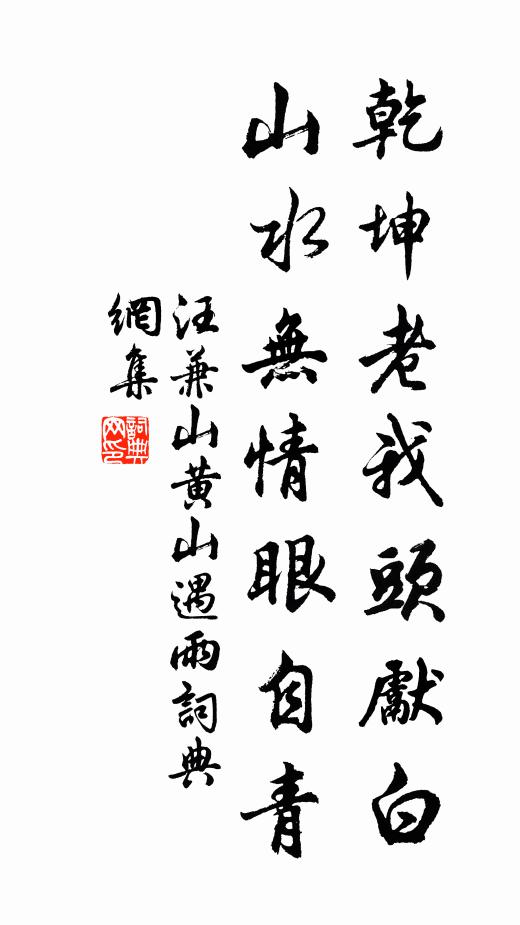 乾坤老我頭獻白
山水無情眼自青
汪兼山黃山遇雨詞典
網集
詞典
网印